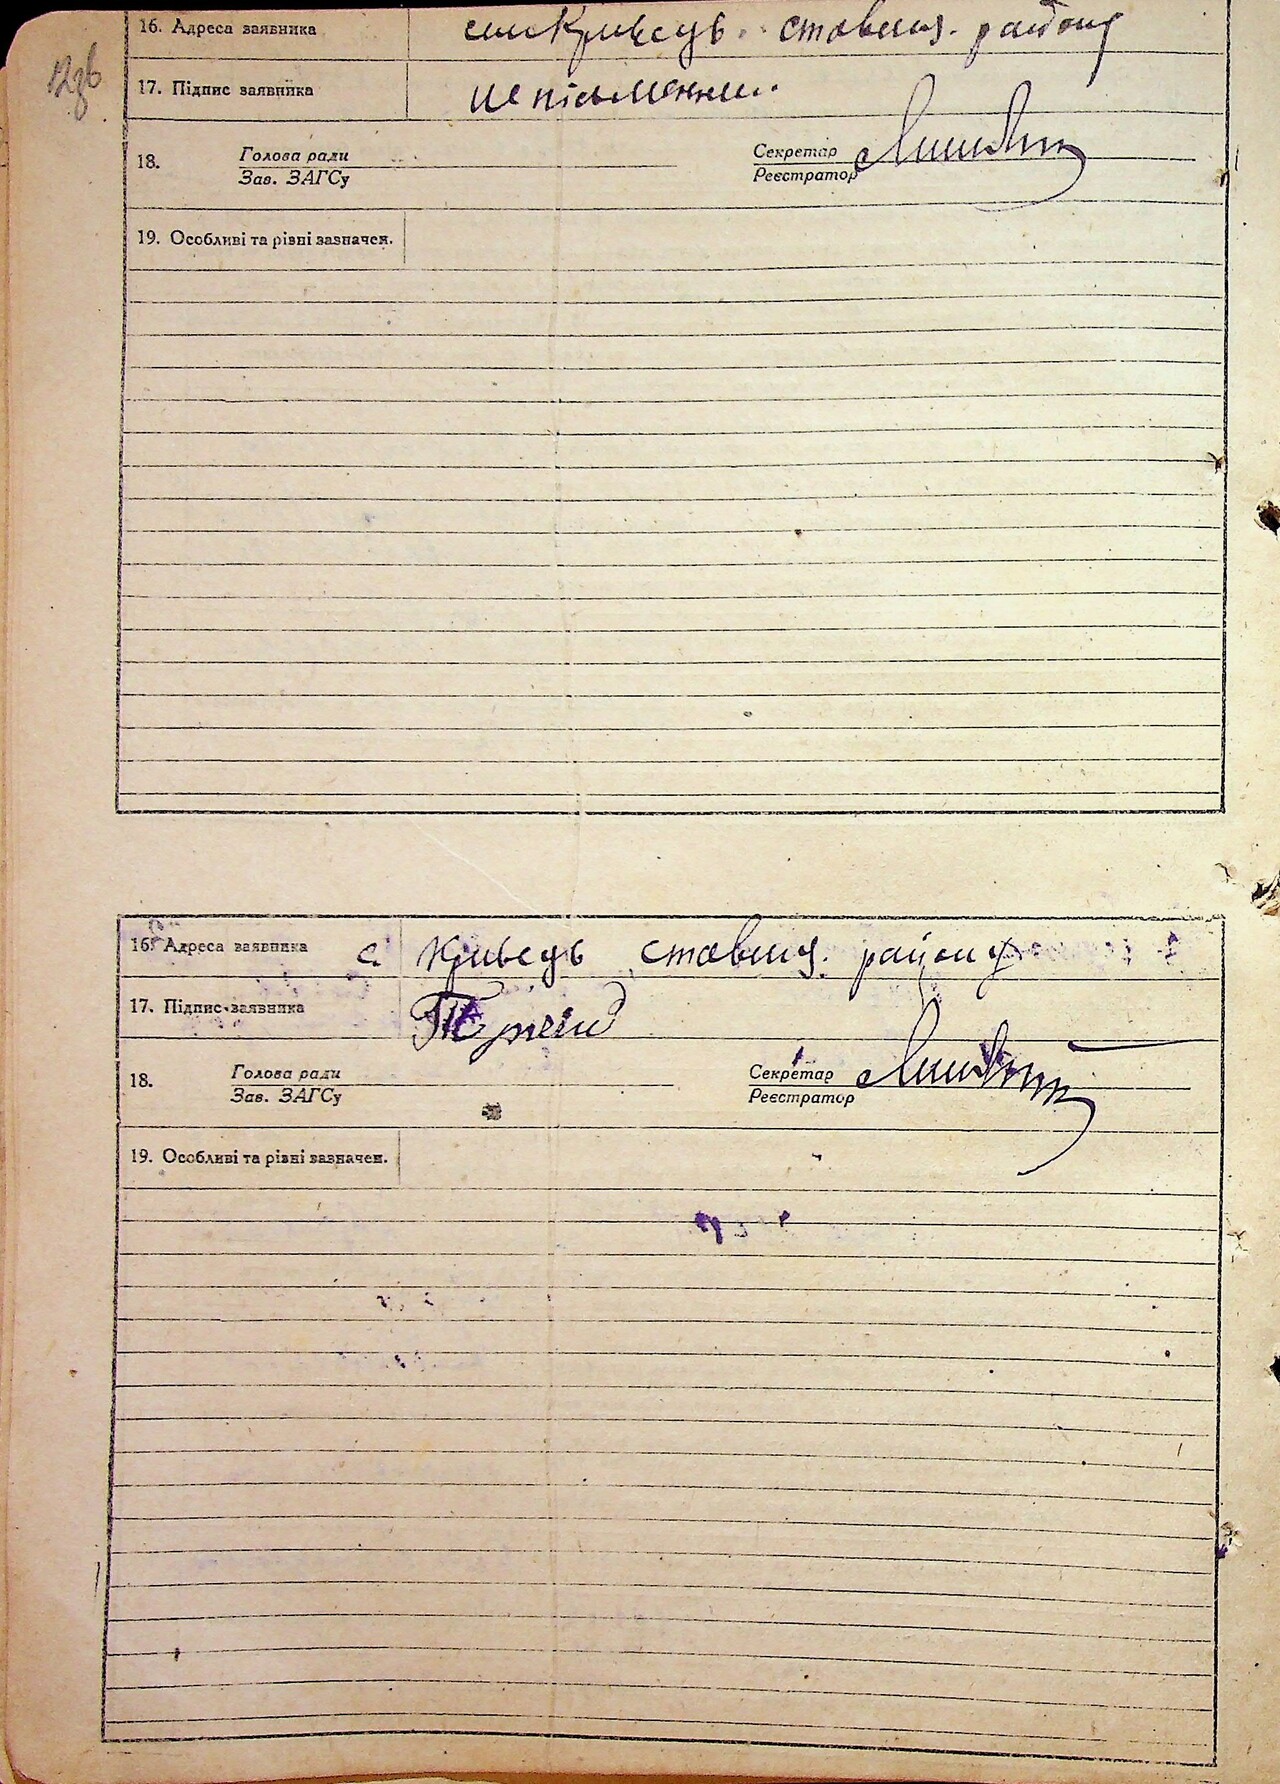 12зв
16. Адреса заявника Кривець ставищ. району
17. Підпис заявника
18. Голова ради Секретар
Зав. ЗАГСу Реєстратор
19. Особливі та рівні зазначен.
16. Адреса заявника с. Кривець ставищ. району
17. Підпис заявника
18. Голова ради Секретар
Зав. ЗАГСу Реєстратор
19. Особливі та рівні зазначен.